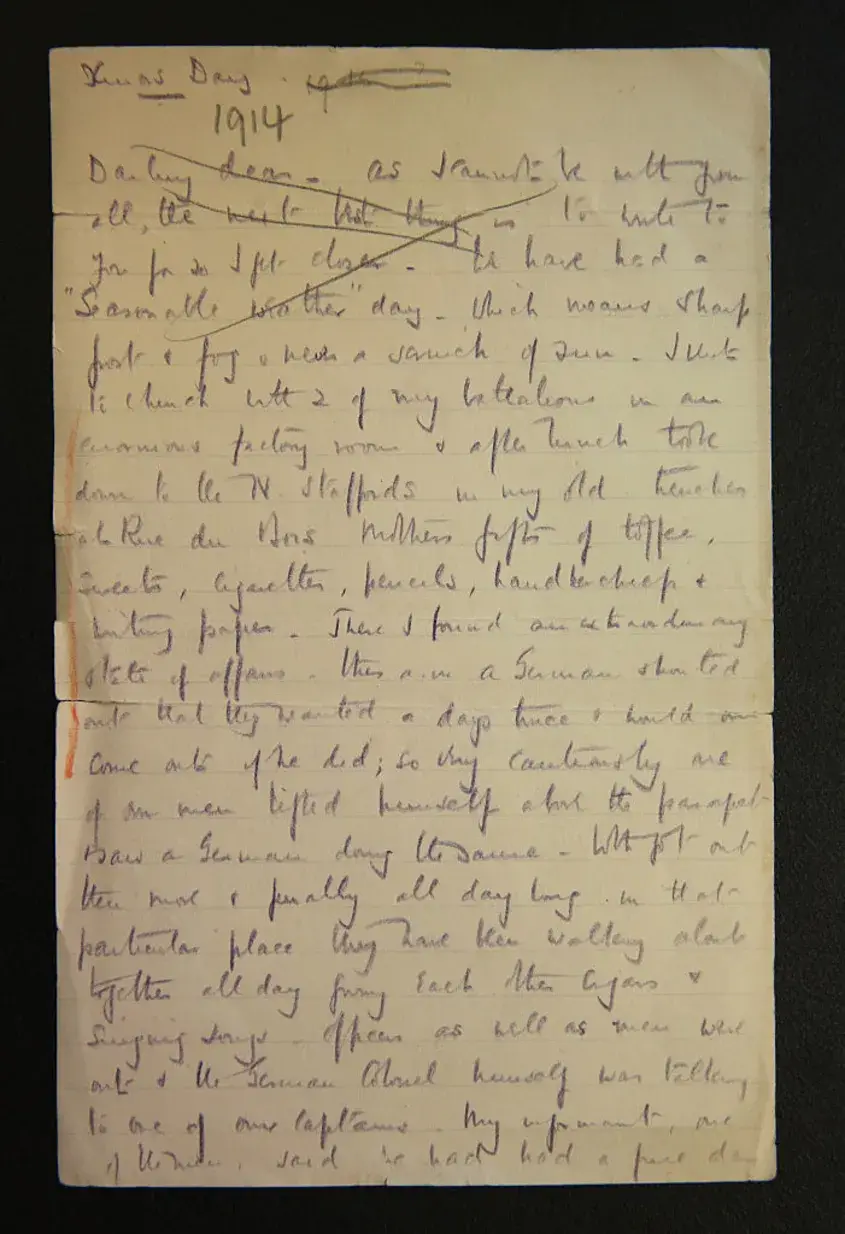 Xmas Day.
1914
Darling dear - as I cannot be with you
all, the next best thing is to write to
you for so I get closer - We have had a
"Seasonable weather" day - which means sharp
frost & fog & never a of sun - I went
to church with 2 of my battalions in an
enormous factory room & after lunch took
down to the N. Staffords in my old trenches
at Rue du Bois Mothers gifts of toffee,
sweets, cigarettes, pencils, handkerchiefs &
writing paper - There I found an extraordinary
state of affairs - this a.m. a German shouted
out that they wanted a days truce & would one
come out if he did; so very cautiously one
of our men lifted himself above the parapet
& saw a German doing the same - Both got out
then more & finally all day long in that
particular place they have been walking about
together all day giving each other cigars &
singing songs - Officers as well as men were
out & the German Colonel himself was talking
to one of our Captains - My informant, one
of the men, said he had had a fine day